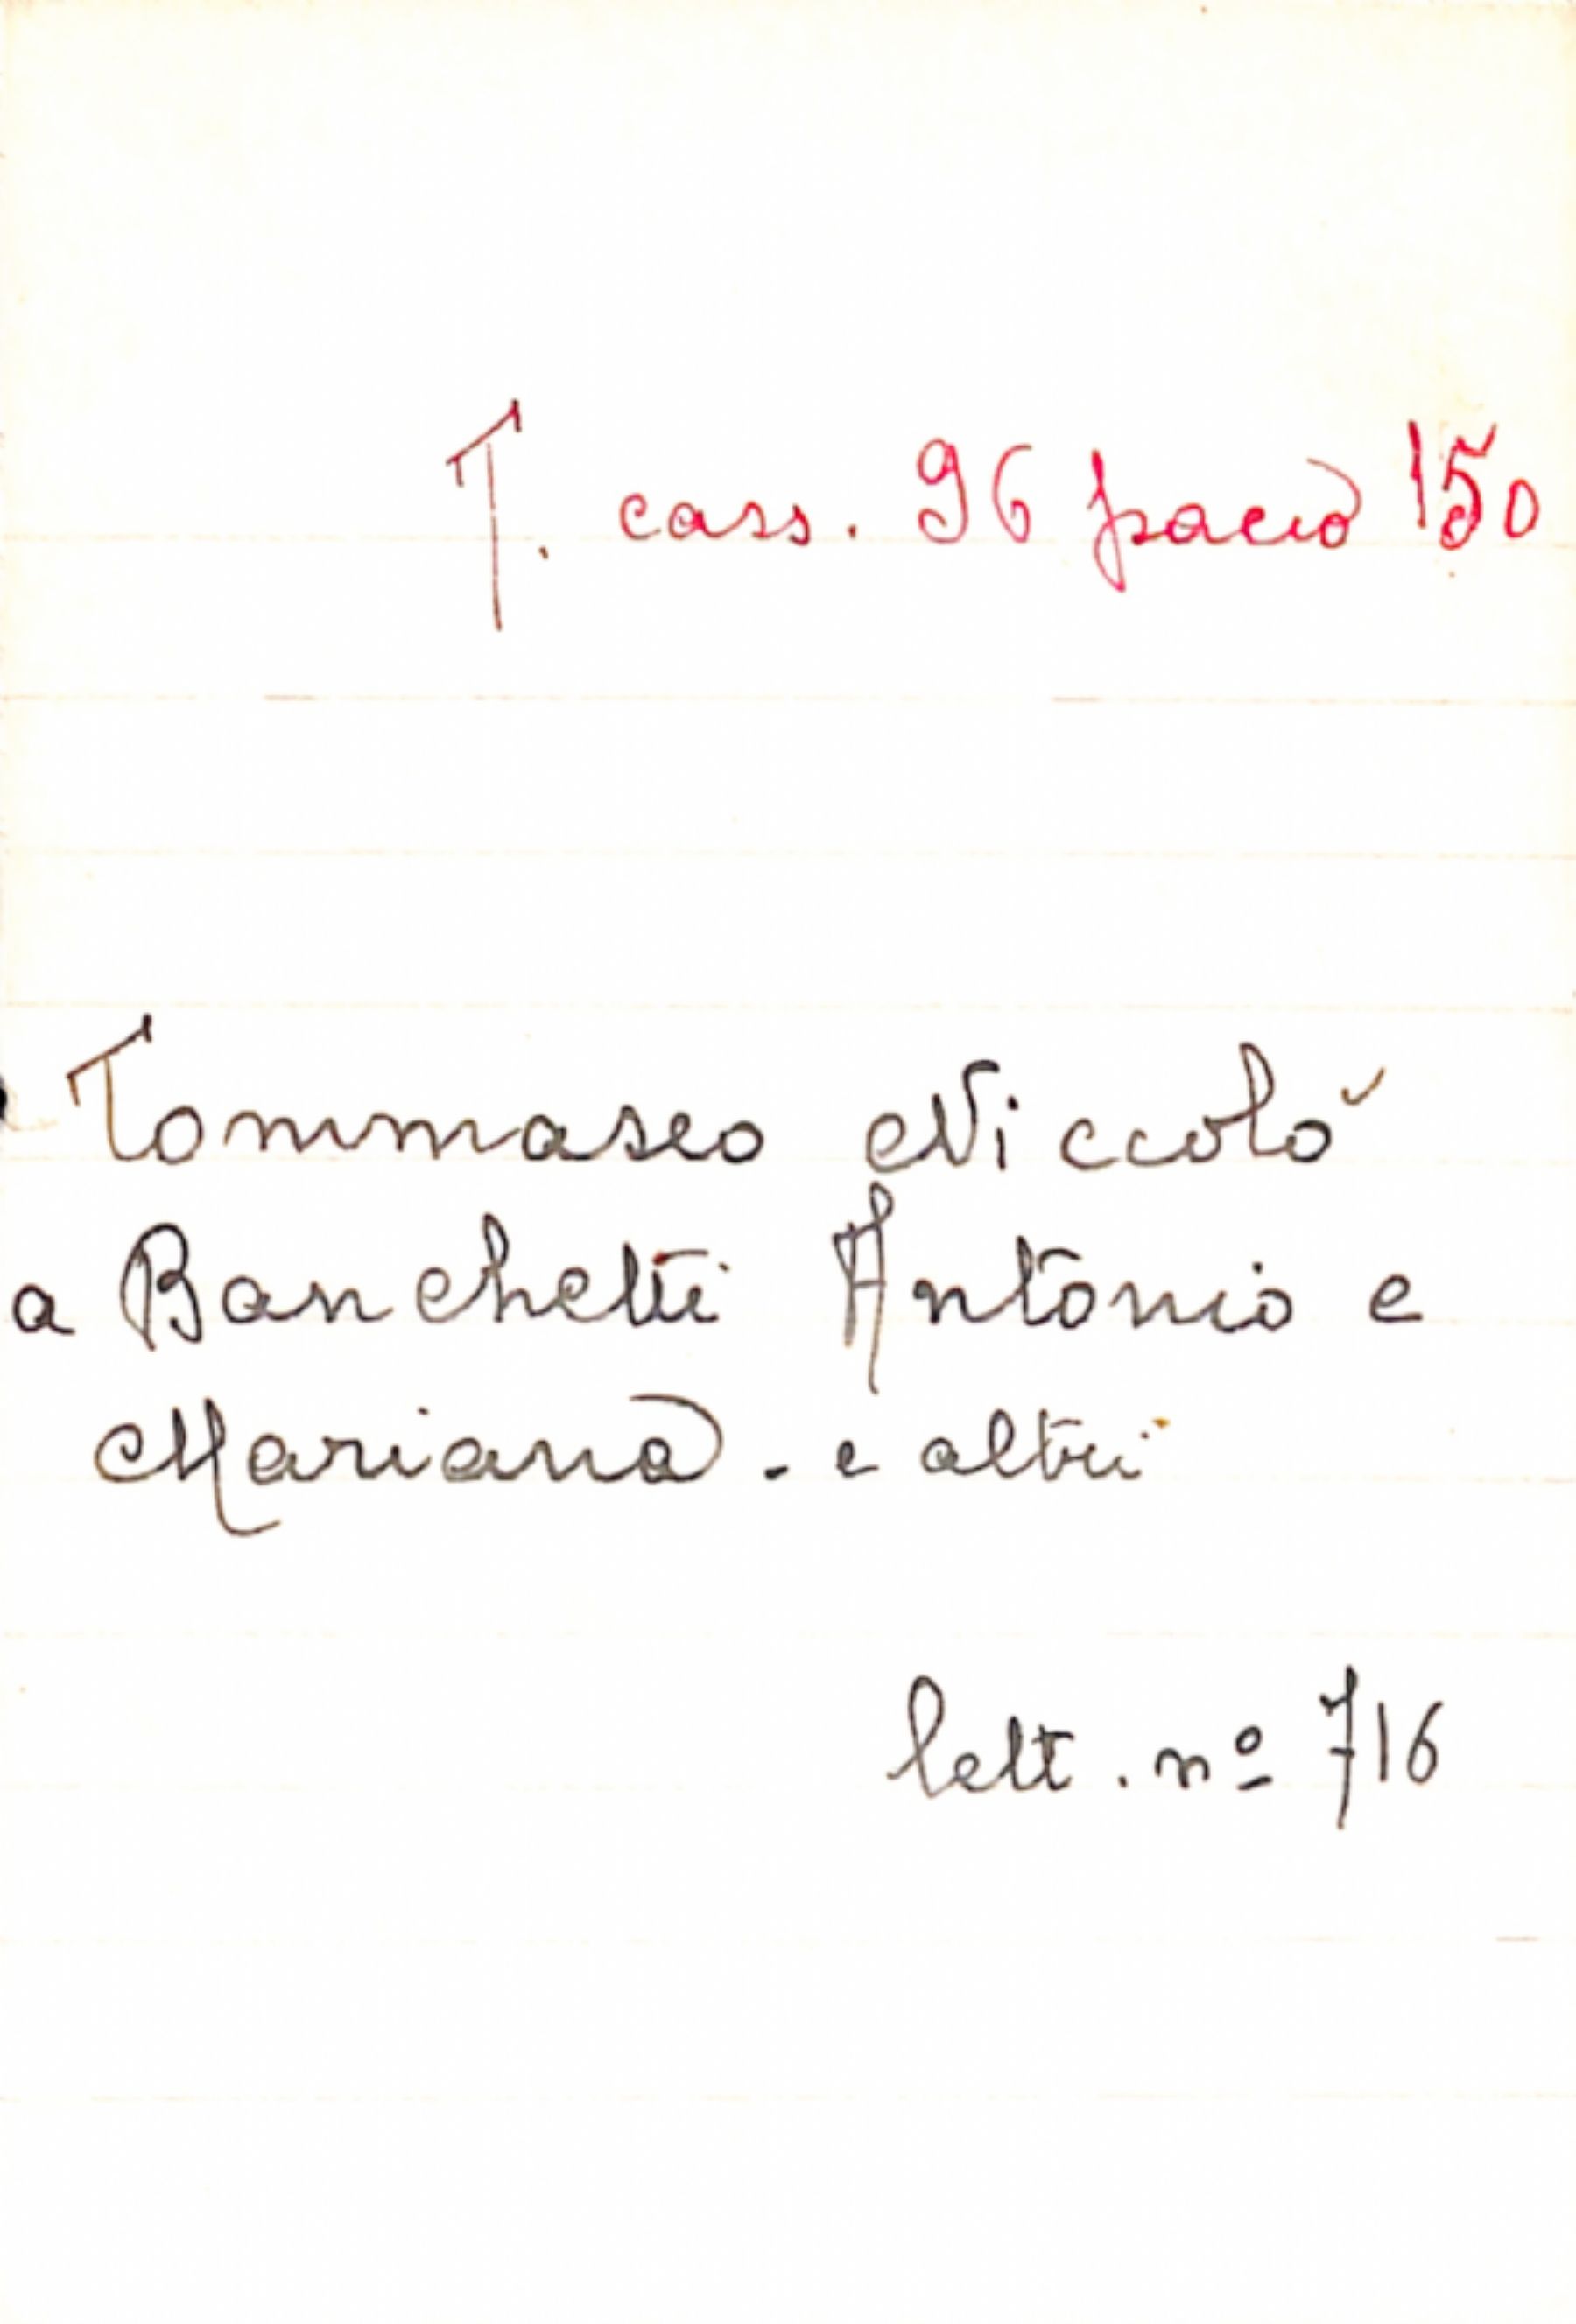 T. cass. 96 pacco 150
Tommaseo Niccolò
a Banchetti Antonio e
Mariana - e altri
lett. nº 716